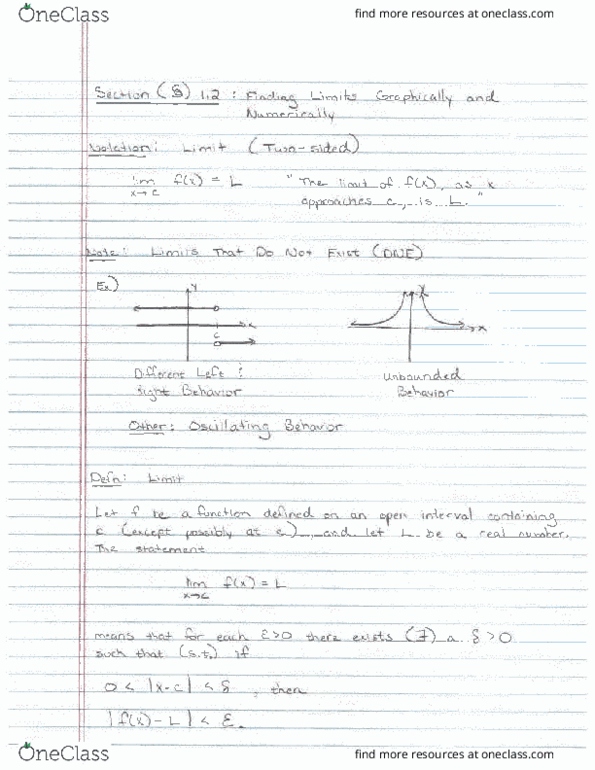 OneClass
find more resources at oneclass.com
Section (§) 1.2 : Finding Limits Graphically and
Numerically
Notation: Limit (Two-sided)
lim f(x) = L "The limit of f(x), as x
x→c approaches c, is L."
Note: Limits That Do Not Exist (DNE)
Ex)
y
x
c
y
x
Different Left &
Right Behavior
Unbounded
Behavior
Other: Oscillating Behavior
Defn: Limit
Let f be a function defined on an open interval containing
c (except possibly at c), and let L be a real number.
The statement
lim f(x) = L
x→c
means that for each ε>0 there exists (∃) a δ>0
such that (s.t.) if
0 < |x-c| < δ, then
|f(x)-L| < ε.
OneClass
find more resources at oneclass.com